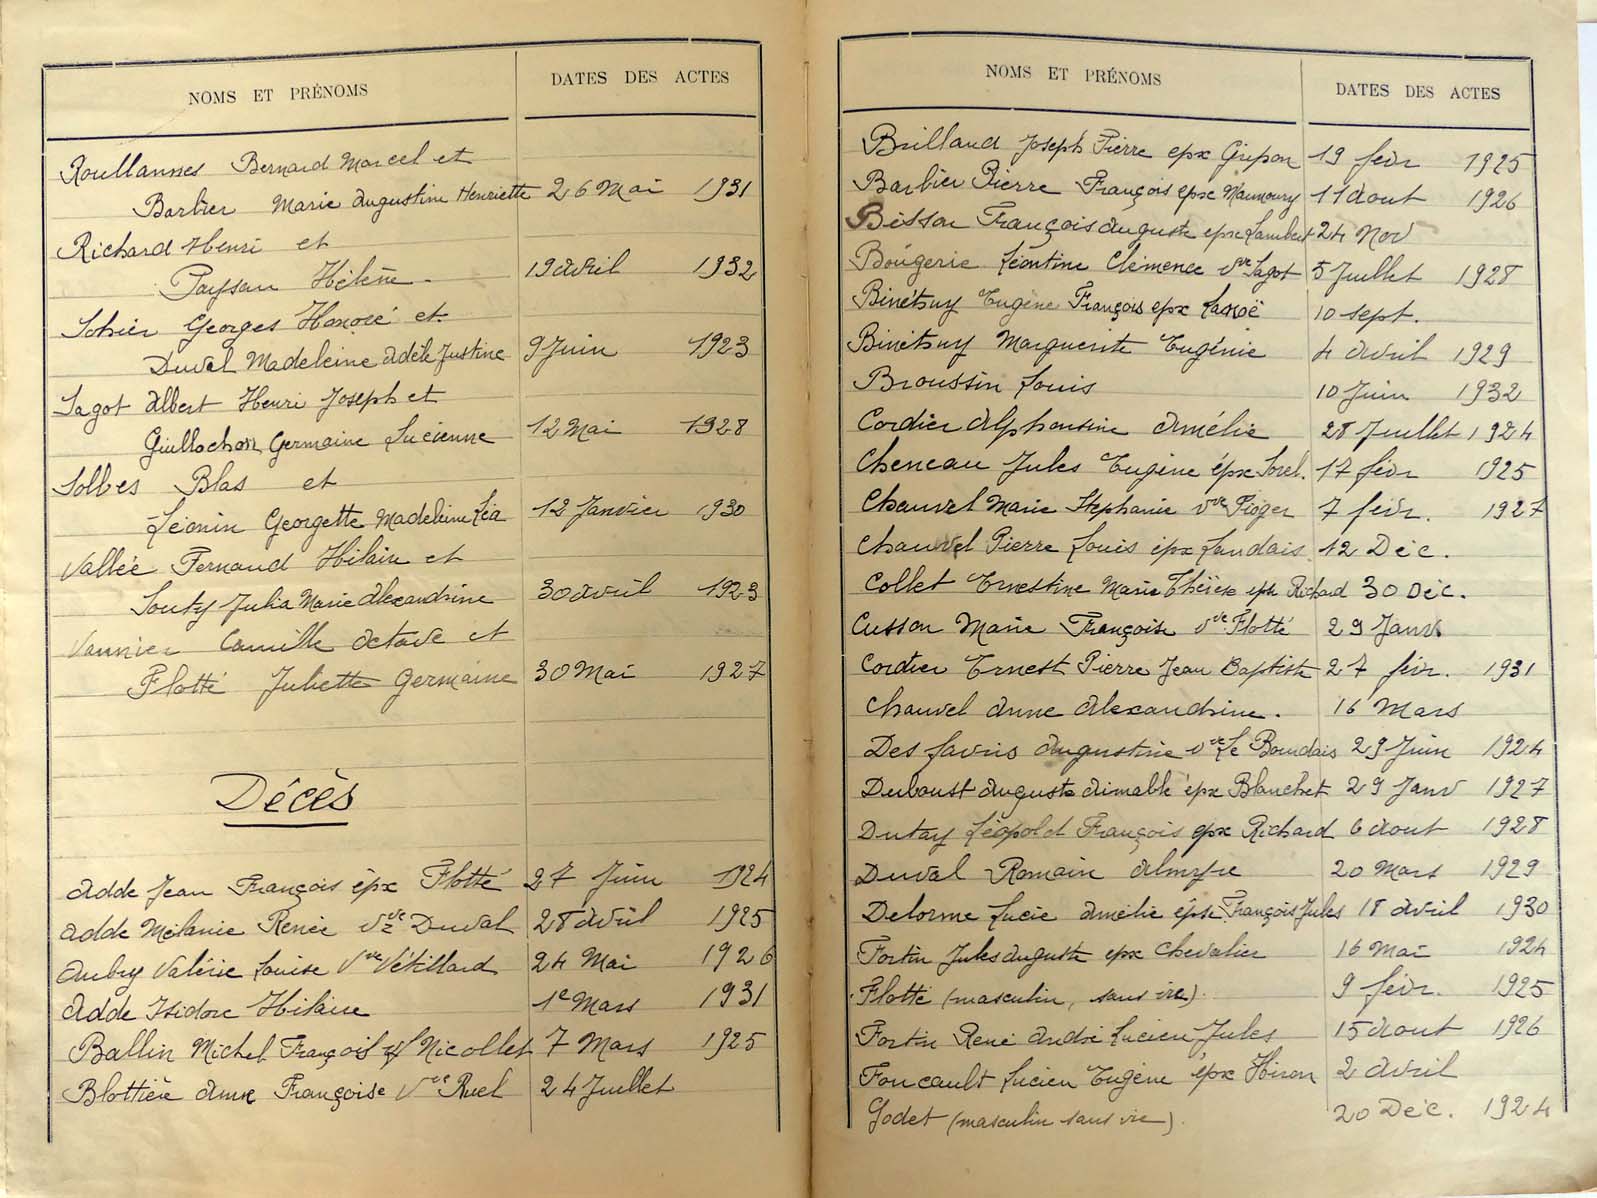 NOMS ET PRÉNOMS DATES DES ACTES
Roullannes Bernard Marcel et
Barbier Marie Augustine Henriette 26 Mai 1931
Richard Henri et
Paysan Hélène. 19 Avril 1932
Sohier Georges Honoré et
Duval Madeleine Adèle Justine 9 Juin 1923
Sagot Albert Henri Joseph et
Guillochon Germaine Lucienne 12 Mai 1928
Solbes Blas et
Léonin Georgette Madeleine Léa 12 Janvier 1930
Vallée Fernand Hilaire et
Souty Julia Marie Alexandrine 30 Avril 1923
Vannier Camille Octave et
Flotté Juliette Germaine 30 Mai 1927
Décès
Adde Jean François épx Flotté 27 Juin 1924
Adde Mélanie Renée Vve Duval 28 Avril 1925
Aubry Valérie Louise Vve Vétillard 24 Mai 1926
Adde Isidore Hilaire 1e Mars 1931
Ballin Michel François Nicollet 7 Mars 1925
Blottière Anne Françoise Vve Ruel 24 Juillet
NOMS ET PRÉNOMS DATES DES ACTES
Brilland Joseph Pierre epx Gripon 19 févr 1925
Barbier Pierre François epx Maumoury 11 Aout 1926
Bisson François Auguste epx Lambert 24 Nov
Bougerie Léontine Clémence Vve Sagot 5 Juillet 1928
Binétruy Eugène François epx Lanoë 10 sept.
Binétruy Marguerite Eugénie 4 Avril 1929
Broussin Louis 10 Juin 1932
Cordier Alphonsine Amélie 28 Juillet 1924
Cheneau Jules Eugène épx Sorel. 17 févr 1925
Chauvel Marie Stephanie Vve Pioger 7 févr. 1927
Chauvel Pierre Louis épx Landais 12 Déc.
Collet Ernestine Marie Thérèse epse Richard 30 Déc.
Cusson Marie Françoise Vve Flotté 29 Janv
Cordier Ernest Pierre Jean Baptiste 27 févr. 1931
Chauvel Anne Alexandrine. 16 Mars
Des favris Augustine Vve Le Bourdais 29 Juin 1924
Duboust Auguste Aimable épx Blanchet 29 Janv 1927
Dutay Léopold François epx Richard 6 Aout 1928
Duval Romain Almyre 20 Mars 1929
Delorme Lucie Amélie épse François Jules 18 Avril 1930
Fortin Jules Auguste epx Chevalier 16 Mai 1924
Flotté (masculin, sans vie). 9 févr. 1925
Fortin René André Lucien Jules 15 Aout 1926
Foucault Lucien Eugène épx Hiron 2 Avril
Godet (masculin sans vie). 20 Déc. 1924